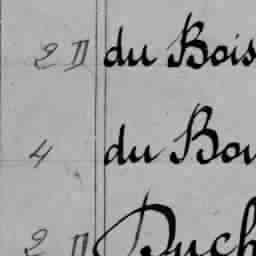 2 D du Bois
4 du Bou
2 D Duch